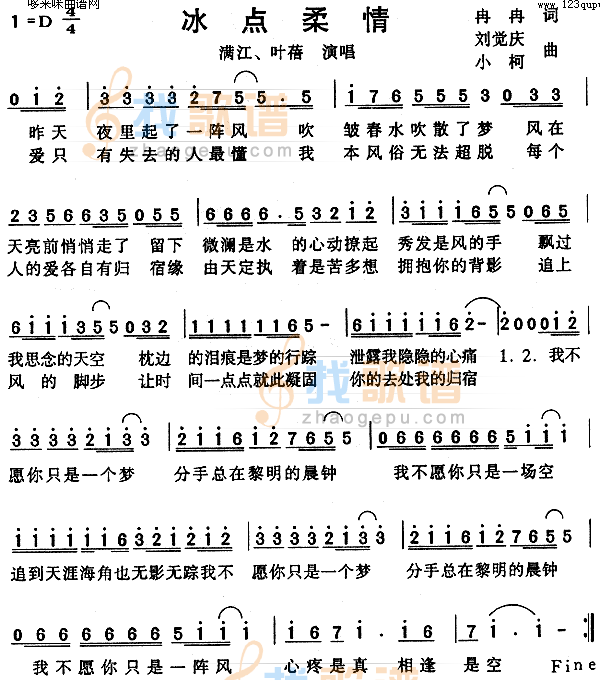 哆来咪曲谱网
www.123qupu
1=D 4/4
冰点柔情
冉冉 词
刘觉庆
小柯 曲
满江、叶蓓 演唱
0 1 2 3 3 3 3 2 7 5 5 . 5 1 7 6 5 5 5 3 0 3 3
昨天 夜里起了一阵风 吹 皱春水吹散了梦 风在
爱只 有失去的人最懂 我 本风俗无法超脱 每个
2 3 5 6 6 3 5 5 0 5 5 6 6 6 6 . 5 3 2 1 2 3 1 1 1 6 5 5 0 6 5
天亮前悄悄走了 留下 微澜是水 的心动撩起 秀发是风的手 飘过
人的爱各自有归 宿缘 由天定执 着是苦多想 拥抱你的背影 追上
6 1 1 1 3 5 5 0 3 2 1 1 1 1 1 1 1 6 5 - 6 1 1 1 1 1 6 2 - 2 0 0 0 1 2
我思念的天空 枕边 的泪痕是梦的行踪 泄露我隐隐的心痛 1.2.我不
风 的 脚步 让时 间一点点就此凝固 你的去处我的归宿
找歌谱
zhaogepu.com
3 3 3 3 3 2 1 3 3 2 1 1 6 1 2 7 6 5 5 0 6 6 6 6 6 6 6 5 1 1 1
愿你只是一个梦 分手总在黎明的晨钟 我不愿你只是一场空
1 1 1 1 1 1 1 6 3 2 1 2 1 2 3 3 3 3 3 2 1 3 3 2 1 1 6 1 2 7 6 5 5
追到天涯海角也无影无踪我不 愿你只是一个梦 分手总在黎明的晨钟
0 6 6 6 6 6 6 6 5 1 1 1 1 6 7 1 . 7 1 2 1 1 - - -
我不愿你只是一阵风 心疼是真 相逢 是空 Fine